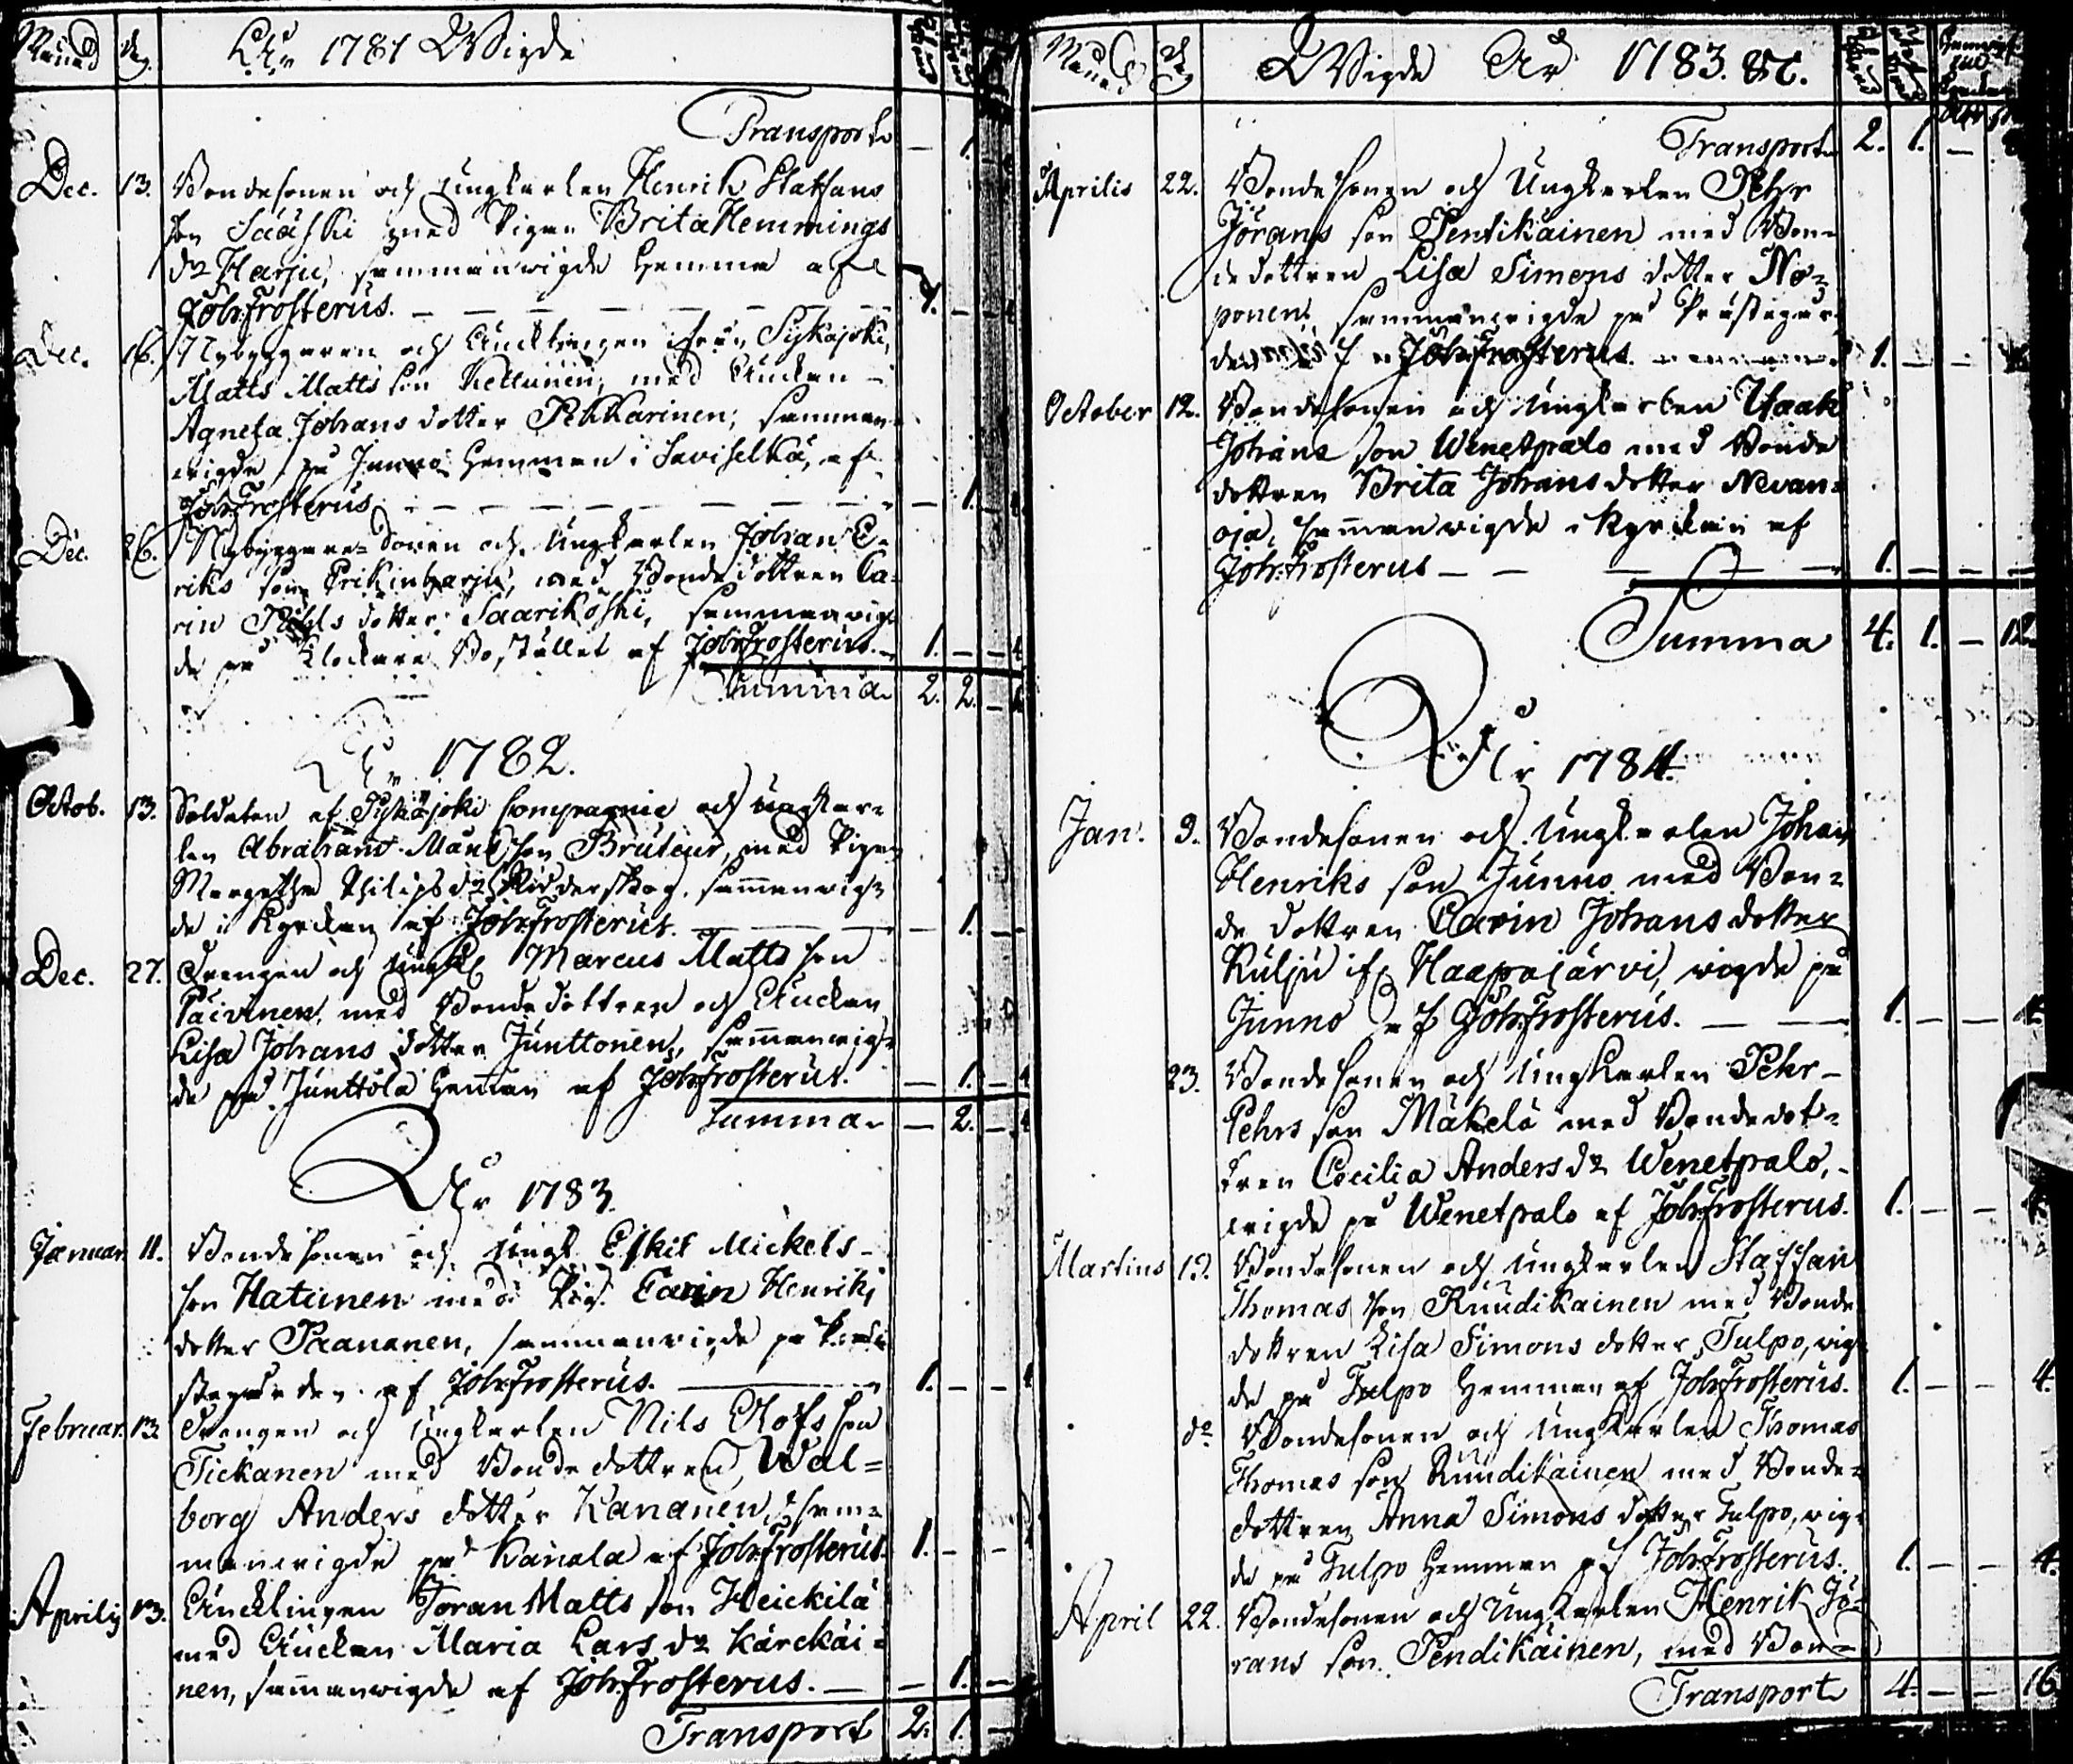 Månad dag. År 1781 Wigde
Transport — 1.
Dec. 13. Bondesonen och ungkarlen Henrik Staffans
son Sääski med Pigan Brita Hemmings
dr Harju, sammanwigde hemma af
Joh. Frosterus. — 1. —
Dec. 16. Nybyggaren och Enklingen ifrån Sijkajoki,
Matts Matts son Kettunen, med Enkan
Agneta Johans dotter Pekkarinen, samman-
wigde på Junno Hemman i Saviselkä, af
Joh. Frosterus — — 1.
Dec. 26. Nybyggare-Sonen och Ungkarlen Johan E-
riks son Erikinharju, med Bondedottren Ca-
rin Pehls dotter Saarikoski, sammanwig-
de på Klockare Bostället af Joh. Frosterus. 1. —
Summa 2. 2. —
År 1782.
Octob. 13. Soldaten af Sijkajoki Compagnie och ungkar-
len Abraham Måns son Bruteur, med Pigan
Margetha Philips dr Ridderskog, sammanwig-
de i Kyrckan af Joh. Frosterus. — 1. —
Dec. 27. Drengen och ungk. Marcus Matts son
Päivinen, med Bondedottren och Enckan
Lisa Johans dotter Junttonen, sammanwig-
de på Junttola Hemman af Joh. Frosterus. — 1. —
Summa — 2. —
År 1783.
Januar. 11. Bondesonen och ungk. Eskil Mickels
son Hatunen med Pig. Carin Henriks
dotter Paananen, sammanwigde på Prä-
stegården af Joh. Frosterus. 1. — —
Februar. 13. Drengen och Ungkarlen Nils Olofs son
Tickanen med Bondedottren Wal=
borg Anders dotter Kananen, sam=
manwigde på Kanala af Joh. Frosterus. 1. — —
Aprilis 13. Encklingen Jöran Matts son Heickilä
med Enckan Maria Lars dr Kärckäi=
nen, sammanwigde af Joh. Frosterus. — — 1. —
Transport 2. 1. —
Månad Dag Wigde År 1783. &c.
Transport 2. 1. —
Aprilis 22. Bondesonen och Ungkarlen Pehr
Jörans son Pentikäinen med Bon-
dedottren Lisa Simons dotter No=
ponen, sammanwigde på Prästegår-
den af Joh. Frosterus. 1. — —
October 12. Bondesonen och Ungkarlen Isaak
Johans son Wenetpalo med Bonde
dottren Brita Johans dotter Nevan-
oja, sammanwigde i Kyrckan af
Joh. Frosterus — — 1. — — —
Summa 4. 1. — 12.
År 1784.
Jan. 9. Bondesonen och Ungkarlen Johan
Henriks son Junno med Bon=
de dottren Carin Johans dotter
Kulju ifr. Haapajärvi, wigde på
Junno af Joh. Frosterus. — 1. — — 4.
23. Bondesonen och Ungkarlen Pehr
Pehrs son Mäkelä med Bondedot-
tren Cecilia Anders dr Wenetpalo,
wigde på Wenetpalo af Joh. Frosterus. 1. — — 4.
Martius 19. Bondesonen och Ungkarlen Staffan
Thomas son Ruudikainen med Bonde
dottren Lisa Simons dotter Tulpo, wig-
de på Tulpo Hemman af Joh. Frosterus. 1. — — 4.
do Bondesonen och Ungkarlen Thomas
Thomas son Ruudikainen med Bonde-
dottren Anna Simons dotter Tulpo, wig-
de på Tulpo Hemman af Joh. Frosterus. 1. — — 4.
April 22. Bondesonen och Ungkarlen Henrik Jö-
rans son Pendikäinen, med Bon=
Transport 4. — — 16